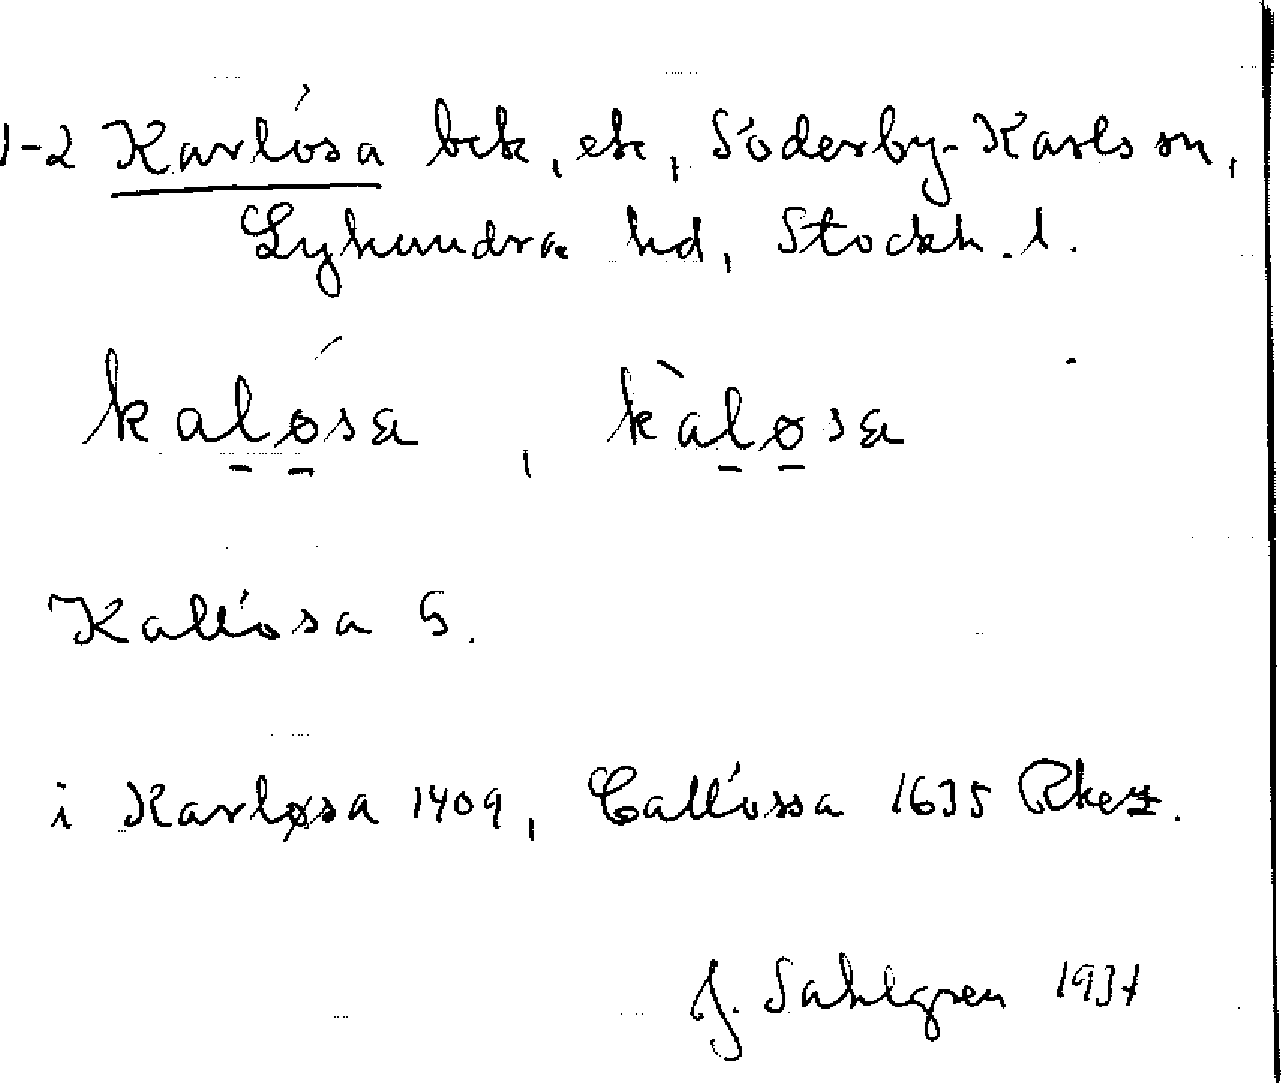 1-2 Karlösa by, ek, Söderby-Karls sn,
Lyhundra hd, Stockh. l.
kalø̱sa, kàlø̱sa
Kallösa G.
i Karløsa 1409, Callössa 1635
J. Sahlgren 1931